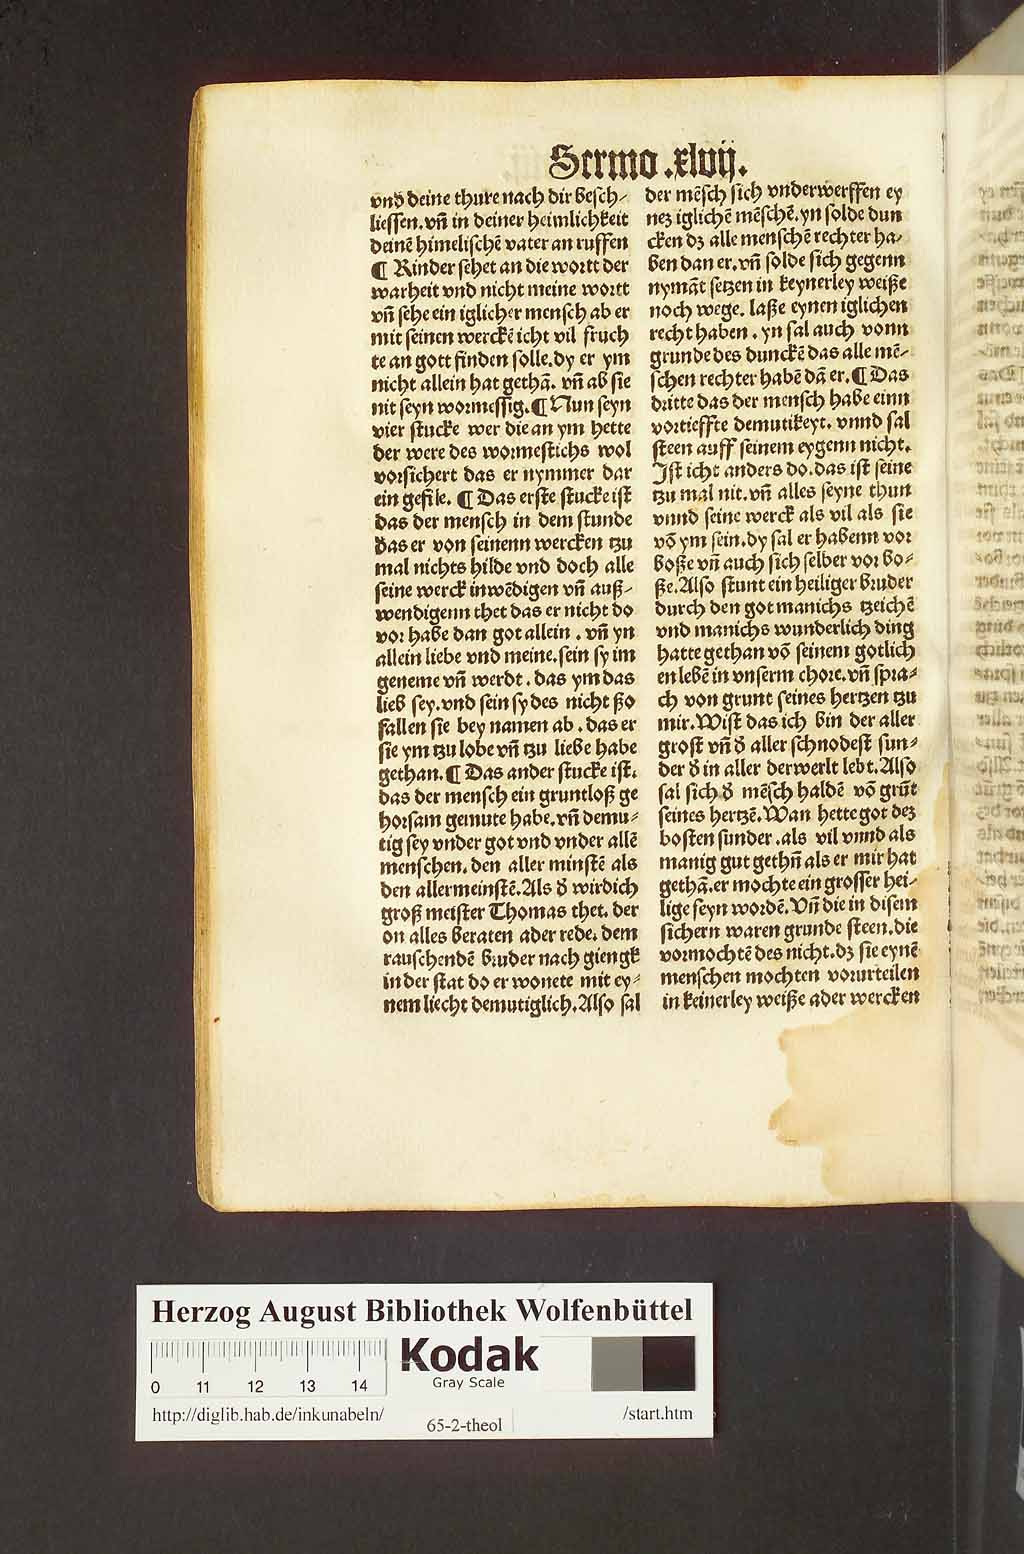 Sermo .xlvij.
vnd deine thure nach dir besch⸗
liessen. vn̄ in deiner heimlichkeit
deinē himelischē vater an ruffen
¶ Kinder sehet an die wortt der
warheit vnd nicht meine wortt
vn̄ sehe ein iglicher mensch ab er
mit seinen werckē icht vil fruch
te an gott finden solle. dy er ym
nicht allein hat gethā. vn̄ ab sie
nit seyn wormessig. ¶ Nun seyn
vier stucke wer die an ym hette
der were des wormestichs wol
vorsichert das er nymmer dar
ein gefile. ¶ Das erste stucke ist
das der mensch in dem stunde
das er von seinenn wercken tzu
mal nichts hilde vnd doch alle
seine werck inwēdigen vn̄ auß⸗
wendigenn thet das er nicht do
vor habe dan got allein . vn̄ yn
allein liebe vnd meine. sein sy im
geneme vn̄ werdt . das ym das
lieb sey. vnd sein sy des nicht ßo
fallen sie bey namen ab . das er
sie ym tzu lobe vn̄ tzu liebe habe
gethan. ¶ Das ander stucke ist.
das der mensch ein gruntloß ge
horsam gemute habe. vn̄ demu⸗
tig sey vnder got vnd vnder allē
menschen. den aller minstē als
den allermeinstē. Als d̄ wirdich
groß meister Thomas thet. der
on alles beraten ader rede. dem
rauschendē bruder nach giengk
in der stat do er wonete mit ey⸗
nem liecht demutiglich. Also sal
der mēsch sich vnderwerffen ey
nez iglichē mēschē. yn solde dun
cken dz alle menschē rechter ha⸗
ben dan er. vn̄ solde sich gegenn
nymāt setzen in keynerley weiße
noch wege. laße eynen iglichen
recht haben . yn sal auch vonn
grunde des dunckē das alle mē⸗
schen rechter habē dā er. ¶ Das
dritte das der mensch habe einn
vortieffte demutikeyt. vnnd sal
steen auff seinem eygenn nicht.
Ist icht anders do. das ist seine
tzu mal nit. vn̄ alles seyne thun
vnnd seine werck als vil als sie
vō ym sein. dy sal er habenn vor
boße vn̄ auch sich selber vor bo⸗
ße. Also stunt ein heiliger bruder
durch den got manichs tzeichē
vnd manichs wunderlich ding
hatte gethan vō seinem gotlich
en lebē in vnserm chore. vn̄ spra⸗
ch von grunt seines hertzen tzu
mir. Wist das ich bin der aller
grost vn̄ d̄ aller schnodest sun⸗
der d̄ in aller derwerlt lebt. Also
sal sich d̄ mēsch haldē vō grūt
seines hertzē. Wan hette got dez
bosten sunder . als vil vnnd als
manig gut gethn̄ als er mir hat
gethā. er mochte ein grosser hei⸗
lige seyn wordē. Vn̄ die in disem
sichern waren grunde steen. die
vormochtē des nicht. dz sie eynē
menschen mochten vorurteilen
in keinerley weiße ader wercken
Herzog August Bibliothek Wolfenbüttel
0 11 12 13 14
Kodak
Gray Scale
http://diglib.hab.de/inkunabeln/
65-2-theol
/start.htm